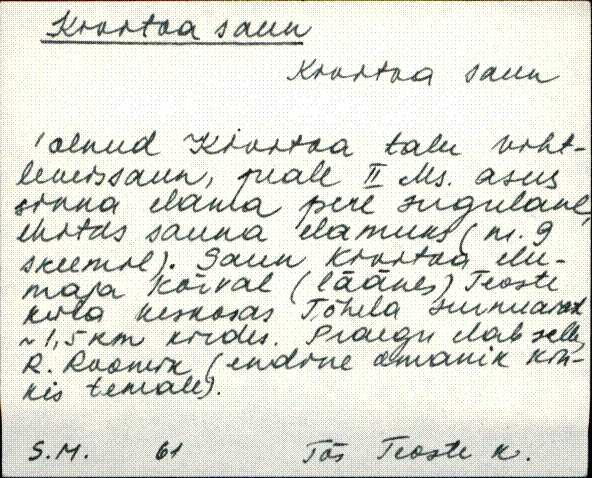 Kivitoa saun
Kivitoa saun
(olnud Kivitoa talu viht-
lejeissaun, peale II Ms. asus
sinna elama pere sugulane,
ehitas sauna elamuks (nr. 9
skeemil). Saun Kivitoa elu-
maja kõrval (läänes) Teoste
küla keskosas Tõhela surnuaiast
~ 1,5 km kirdes. Praegu elab selles
R. Roomik (endine omanik kin-
kis temale).
S.M. 61 Tõs Teoste k.